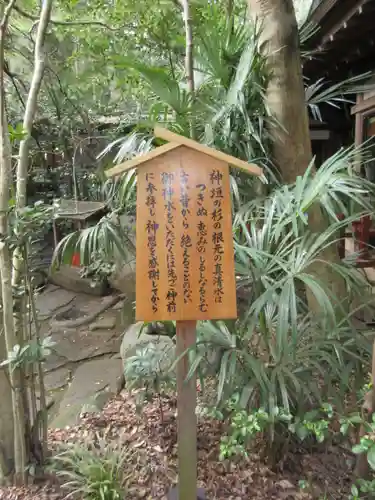 神垣の杉の根元の真清水は
つきぬ恵みのしるしなるらむ
古い昔から絶えることのない
御神水をいただくには先づ神前
に参拝し神恩を感謝してから